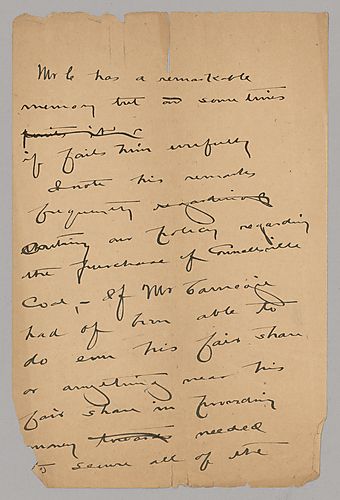 Mr C has a remarkable
memory but on some times
it fails him woefully
I note his remarks
frequently regarding
our policy regarding
the purchase of Connellsville
Coal, – If Mr Carnegie
had of been able to
do even his fair share
or anything near his
fair share in providing
money towards needed
to secure all of the